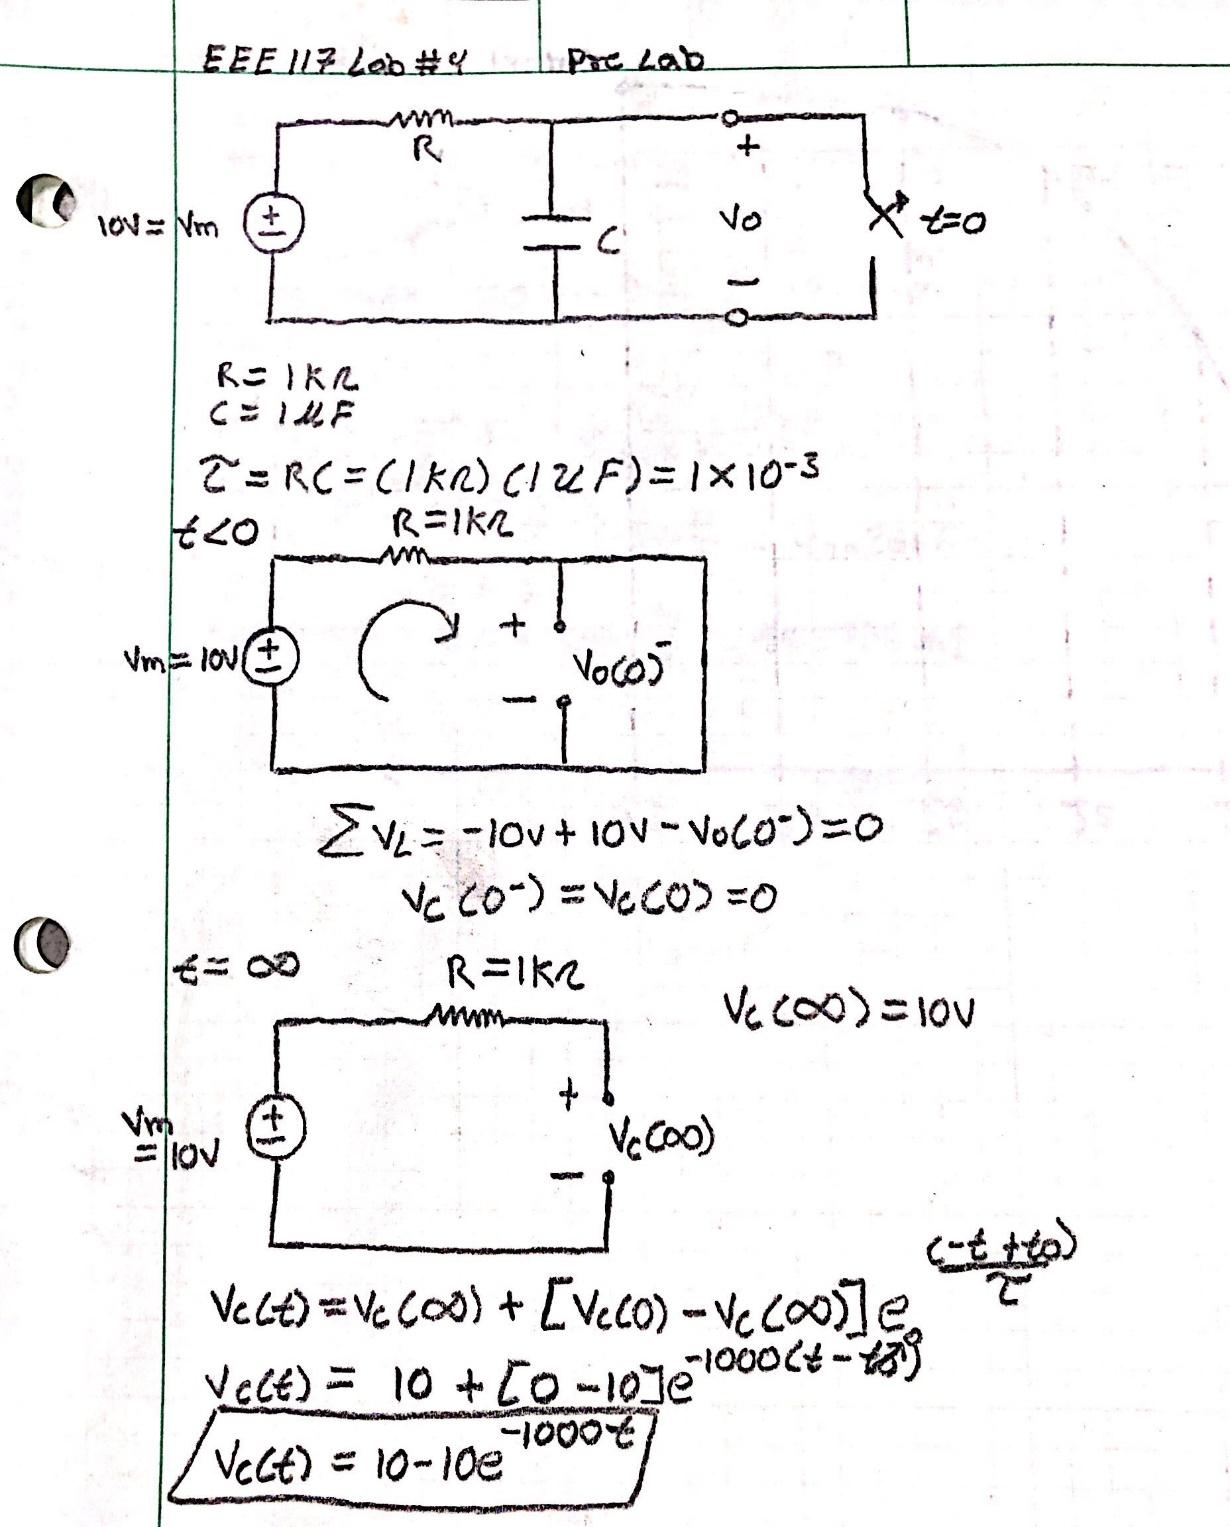 EEE 117 Lab #4 Pre Lab
R
+
10V = Vm
+
-
C
Vo
t=0
-
R = 1kΩ
C = 1μF
τ = RC = (1kΩ)(1μF) = 1×10⁻³
t<0
R=1kΩ
Vm = 10V
+
-
+
Vo(0)⁻
-
ΣVL = -10V + 10V - Vo(0⁻) = 0
Vc(0⁻) = Vc(0) = 0
t = ∞
R = 1kΩ
Vc(∞) = 10V
Vm = 10V
+
-
+
Vc(∞)
-
Vc(t) = Vc(∞) + [Vc(0) - Vc(∞)]e^(-t+t0)/τ
Vc(t) = 10 + [0-10]e^-1000(t-t0)
Vc(t) = 10-10e^-1000t